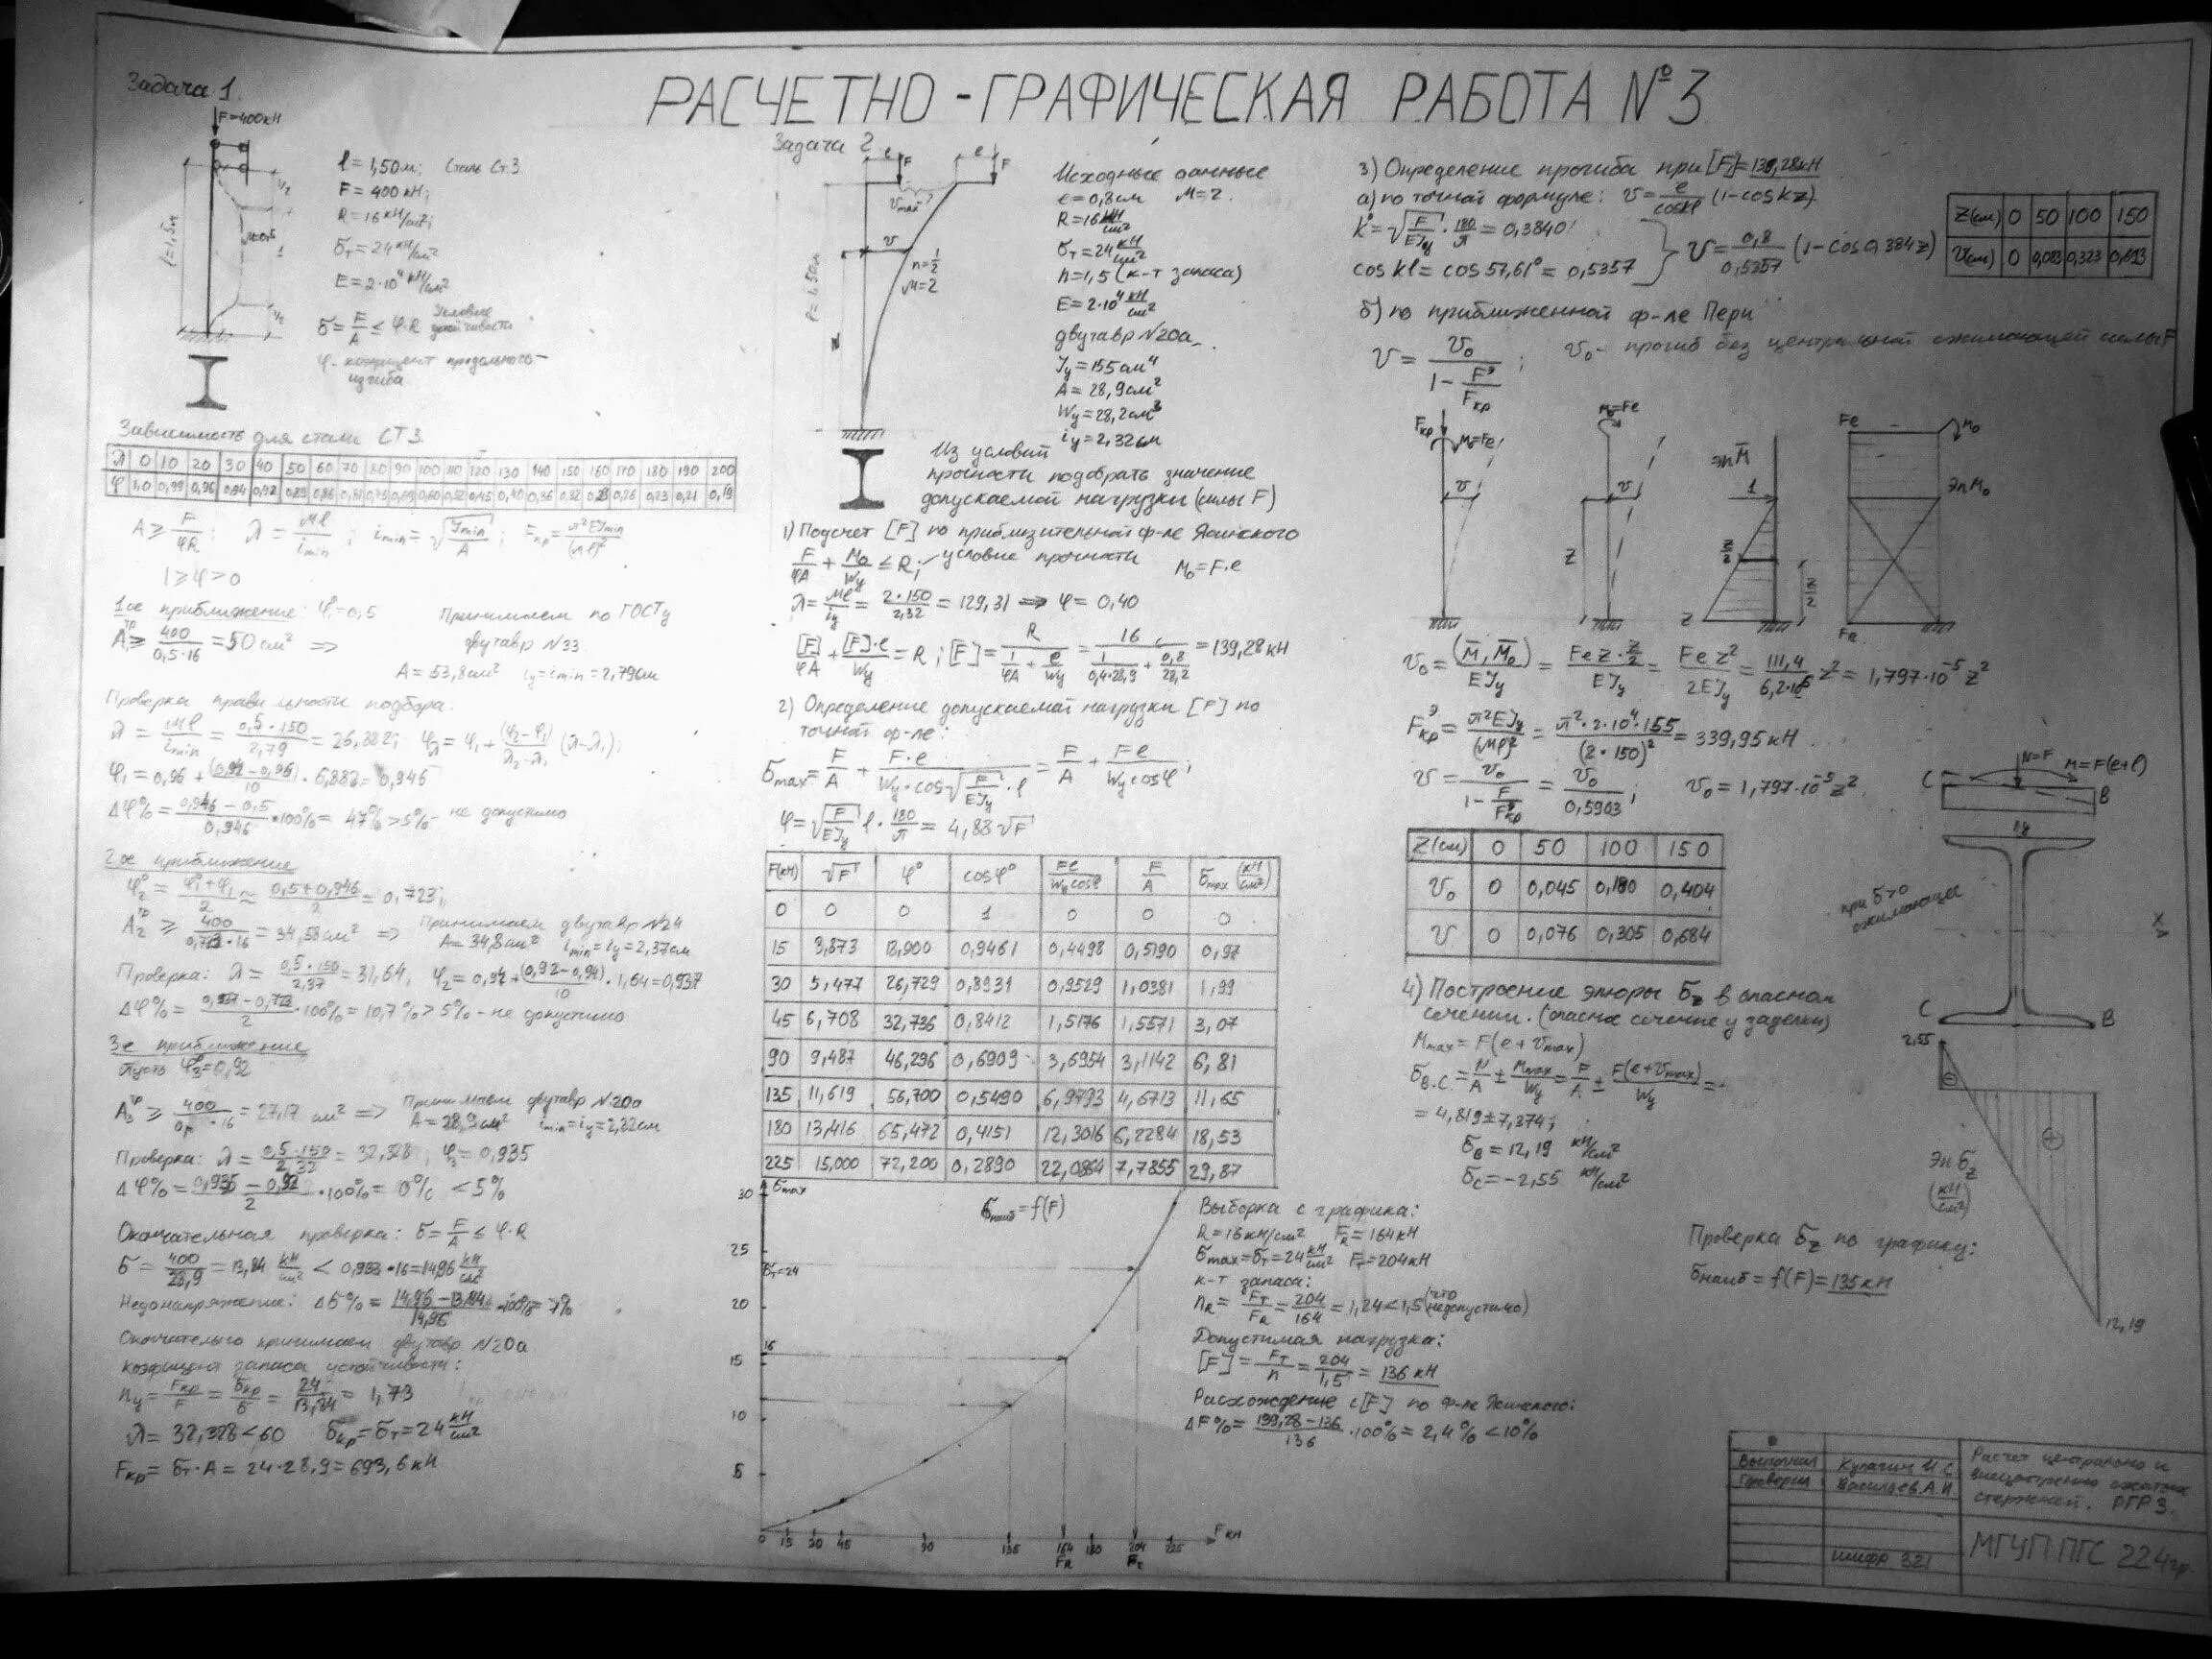 РАСЧЕТНО-ГРАФИЧЕСКАЯ РАБОТА №3
Задача 1.
F=400кН
l=1,5м
μ=0,5
l=1,50м; Сталь Ст.3
F=400 кН;
R=16 кН/см²;
σт=24 кН/см²
E=2·10⁴ кН/см²
σ=F/A ≤ φ·R Условие устойчивости
φ- коэфициент продольного
изгиба
Зависимость для стали СТ3.
λ 0 10 20 30 40 50 60 70 80 90 100 110 120 130 140 150 160 170 180 190 200
φ 1,0 0,99 0,96 0,94 0,92 0,89 0,86 0,81 0,75 0,69 0,60 0,52 0,45 0,40 0,36 0,32 0,26 0,23 0,21 0,19
A≥F/φR; λ=μl/imin; imin=√Jmin/A; Fкр=π²EJmin/(μl)²
1≥φ>0
1ое приближение: φ=0,5 Принимаем по ГОСТу
A₁ᵀᴾ≥400/0,5·16=50см² => двутавр №33
A=53,8см² iy=imin=2,79см
Проверка правильности подбора.
λ=μl/imin=0,5·150/2,79=26,882; φλ=φ₁+(φ₂-φ₁)/(λ₂-λ₁)(λ-λ₁);
φ₁=0,96+(0,94-0,96)/10·6,882=0,946
Δφ%=0,946-0,5/0,946·100%=47%>5%- не допустимо
2ое приближение
φ₂⁰=φ₁⁰+φ₁/2≈0,5+0,946/2=0,723;
A₂ᵀᴾ≥400/0,723·16=34,58см² => Принимаем двутавр №24
A=34,8см² imin=iy=2,37см
Проверка: λ=0,5·150/2,37=31,64, φ₂=0,94+(0,92-0,94)/10·1,64=0,937
Δφ%=0,937-0,723/2·100%=10,7%>5%-не допустимо
3е приближение
пусть φ₃⁰=0,92
A₃ᵀᴾ≥400/·16=27,17 см² => Принимаем двутавр №20а
A=28,9см² imin=iy=2,32см
Проверка: λ=0,5·150/2,32=32,328, φ₃=0,935
Δφ%=0,935-0,92/2·100%=0% <5%
Окончательная проверка: σ=F/A≤φ·R
σ=400/28,9=13,84 кН/см² < 0,935·16=14,96 кН/см²
Недонапряжение: Δσ%=14,96-13,84/14,96·100%=7%
Окончательно принимаем двутавр №20а
коэфициент запаса устойчивости:
ny=Fкр/F=σкр/σ=24/13,84=1,73
λ=32,328<60 σкр=σт=24 кН/см²
Fкр=σт·A=24·28,9=693,6кН
Задача 2
e F e F
Vmax
v
n=1/2
μ=2
l=1,50м
z
Исходные данные
e=0,8см μ=2.
R=16 кН/см²
σт=24 кН/см²
n=1,5 (к-т запаса)
E=2·10⁴ кН/см²
двутавр №20а
Jy=155см⁴
A=28,9см²
Wy=28,2см³
iy=2,32см
Из условий
прочности подобрать значение
допускаемой нагрузки (силы F)
1) Подсчет [F] по приблизительной ф-ле Ясинского
F/φA+M₀/Wy≤R; условие прочности M₀=F·e
λ=μl/iy=2·150/2,32=129,31 => φ=0,40
[F]/φA+[F]·e/Wy=R; [F]=R/(1/φA+e/Wy)=16/(1/0,4·28,9+0,8/28,2)=139,28кН
2) Определение допускаемой нагрузки [F] по
точной ф-ле:
σmax=F/A+F·e/Wy·cos√F/EJy·l=F/A+Fe/Wy cosφ;
φ=√F/EJy l·180/π=4,88√F
F(кН) √F φ° cosφ° Fe/Wy cosφ F/A σmax (кН/см²)
0 0 0 1 0 0 0
15 3,873 18,900 0,9461 0,4498 0,5190 0,97
30 5,477 26,729 0,8931 0,9529 1,0381 1,99
45 6,708 32,736 0,8412 1,5176 1,5571 3,07
90 9,487 46,296 0,6909 3,6954 3,1142 6,81
135 11,619 56,700 0,5490 6,9793 4,6713 11,65
180 13,416 65,472 0,4151 12,3016 6,2284 18,53
225 15,000 72,200 0,2890 22,0864 7,7855 29,87
σmax
σнаиб=f(F)
30
25
σт=24
20
16
15
10
5
0 15 30 45 90 135 164 180 204 225 F кН
FR Fт
Выборка с графика:
R=16кН/см² FR=164кН
σmax=σт=24 кН/см² Fт=204кН
к-т запаса:
nR=Fт/FR=204/164=1,24<1,5 (что недопустимо)
Допустимая нагрузка:
[F]=Fт/n=204/1,5=136 кН
Расхождение с [F] по ф-ле Ясинского:
ΔF%=139,28-136/136·100%=2,4%<10%
3) Определение прогиба при [F]=139,28кН
а) по точной формуле: v=e/coskl (1-coskz)
k°=√F/EJy·180/π=0,3840
coskl=cos57,61°=0,5357
v=0,8/0,5357 (1-cos0,384z)
Z(см) 0 50 100 150
V(см) 0 0,083 0,323 0,693
б) по приближенной ф-ле Пери
v=v₀/1-F/Fкрᵌ; v₀- прогиб без центральной сжимающей силы F
Fкр M₀=Fe
v
M₀=Fe
v
z
эп M̄
1
z/2
z
z/2
Fe M₀
Эп M₀
Fe
v₀=(M̄,M₀)/EJy=Fe z·z/2/EJy=Fe z²/2EJy=111,4/6,2·10⁶ z²=1,797·10⁻⁵z²
Fкрᵌ=π²EJy/(μl)²=π²·2·10⁴·155/(2·150)²=339,95кН
v=v₀/1-F/Fкрᵌ=v₀/0,5903; v₀=1,797·10⁻⁵z²
Z(см) 0 50 100 150
v₀ 0 0,045 0,180 0,404
v 0 0,076 0,305 0,684
4) Построение эпюры σz в опасном
сечении. (опасное сечение у заделки)
Mmax=F(e+vmax)
σВ.С.=N/A±Mmax/Wy=F/A±F(e+vmax)/Wy=
=4,819±7,374;
σВ=12,19 кН/см²
σС=-2,55 кН/см²
N=F M=F(e+l)
C B
y
при σ>0
сжимающие
x
C B
2,55
Эп σz
(кН/см²)
12,19
Проверка σz по графику:
σнаиб=f(F)=135кН
Выполнил Кулагин И.С.
Проверил Васильев А.И.
шифр 321
Расчет центрально и
внецентренно сжатых
стержней. РГР 3.
МГУП ПГС 224гр.